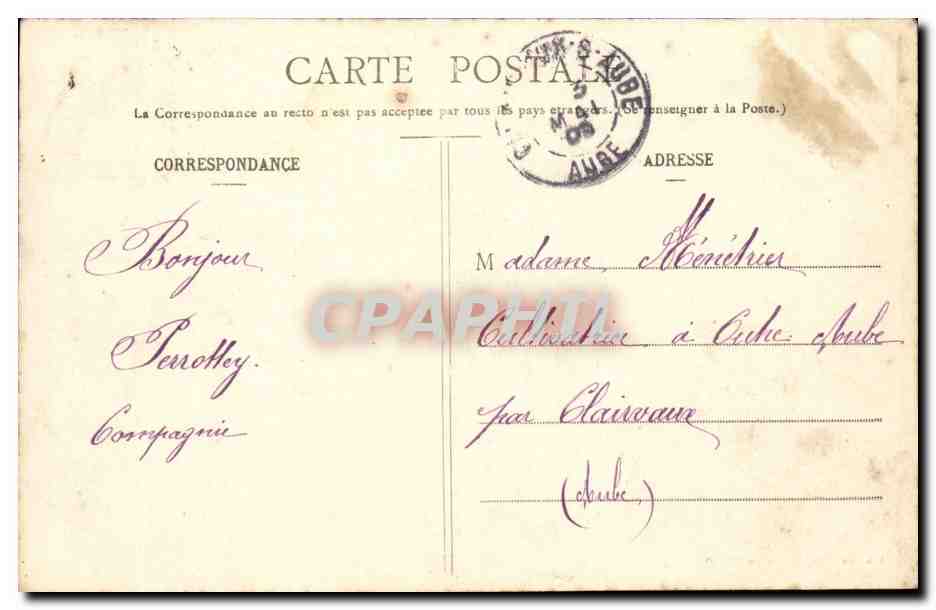 CARTE POSTALE
La Correspondance au recto n'est pas acceptée par tous les pays étrangers. (Se renseigner à la Poste.)
CORRESPONDANCE
ADRESSE
UX-S-AUBE
AUBE
09
Bonjour
Perrottey.
Compagnie
Madame, Ménétrier
Cultivatrice, à Outre Aube
par Clairvaux
(Aube)
CPAPHIL